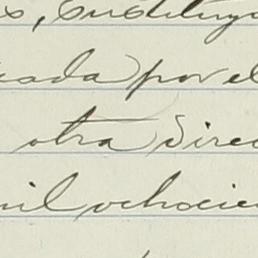 s, Constituy
cada por el
otra Direc
mil ochocien